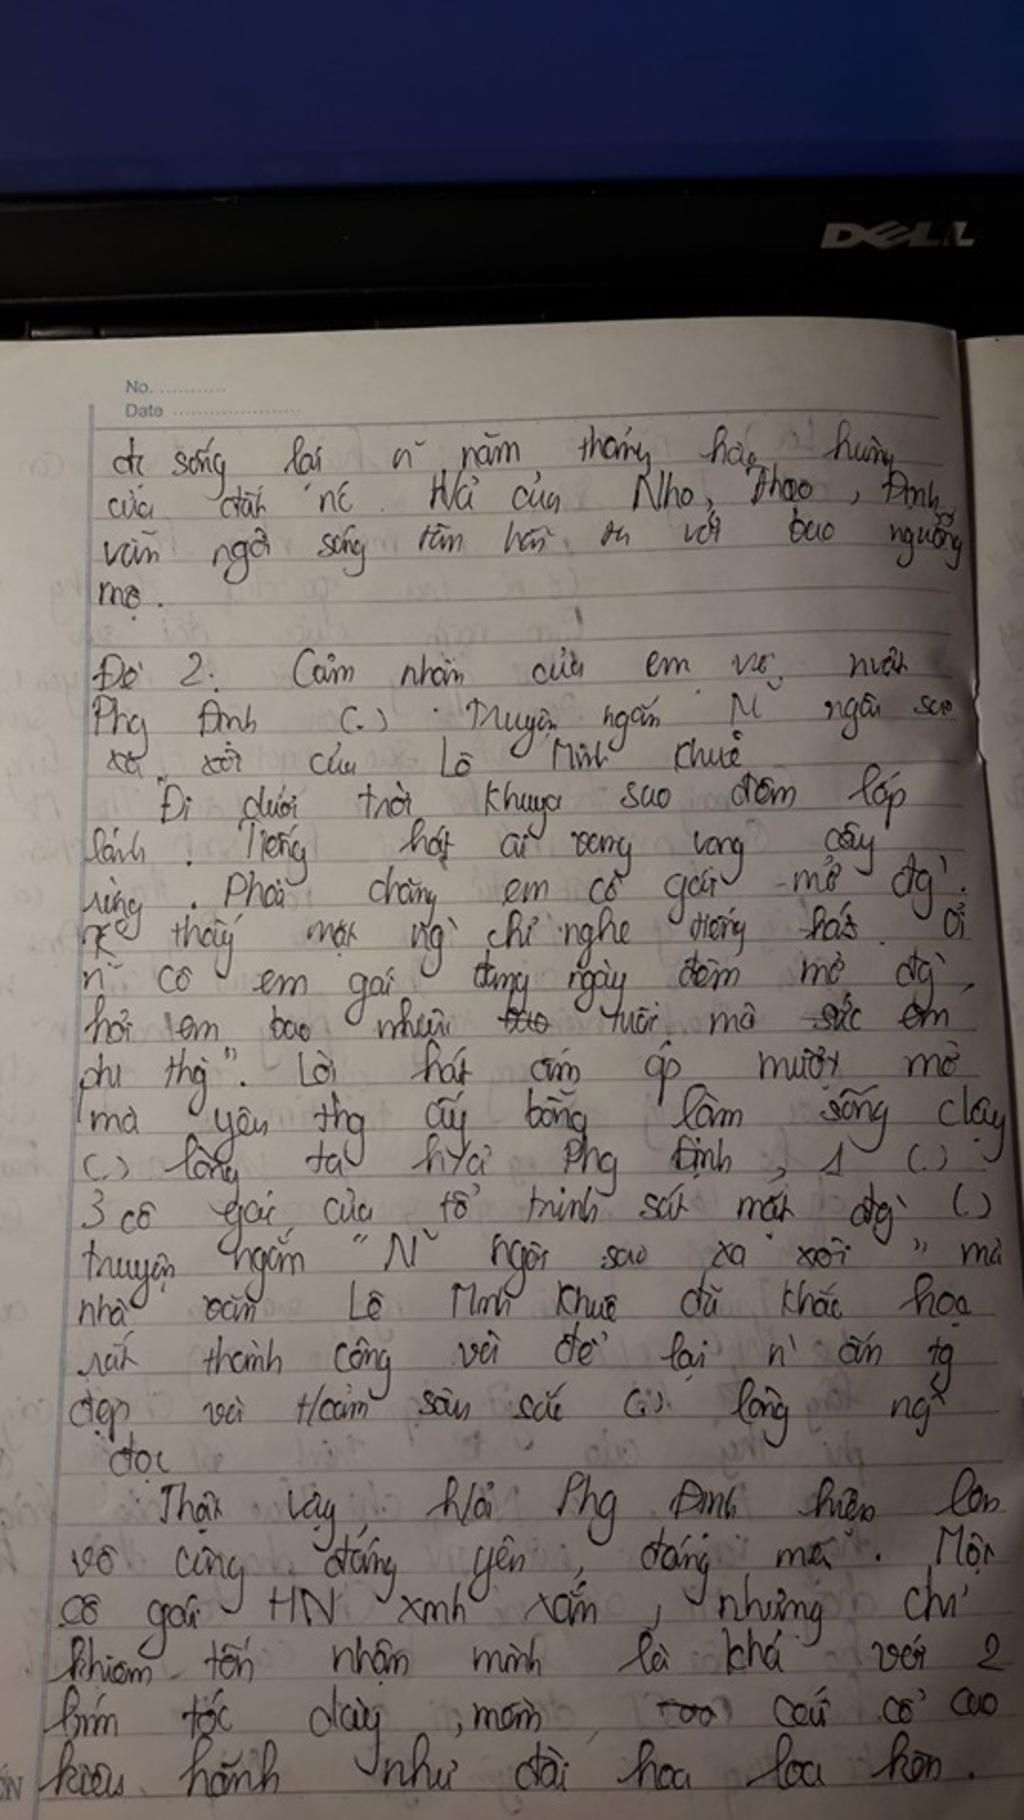 DELL
No. ............
Date ......................
sống lại n~ năm tháng hào hùng
của đất nc. H/ả của Nho, Thao, Định
vẫn ngời sáng tâm hồn, với bao ngưỡng
mộ.
Đề 2: Cảm nhận của em về nvật
Phg Định (.) truyện ngắn "N~ ngôi sao
xa xôi" của Lê Minh Khuê
"Đi dưới trời khuya sao đêm lấp
lánh. Tiếng hát ai vang vọng cây
rừng. Phải chăng em cô gái mở đg`.
K thấy mặt ng` chỉ nghe tiếng hát. Ơi
n~ cô em gái đang ngày đêm mở đg`,
hỏi em bao nhiêu tuổi mà sức em
phi thg`". Lời hát ấm áp mượt mà
mà yêu thg ấy bỗng làm sống dậy
(.) lòng ta h/ả Phg Định, 1 (.)
3 cô gái của tổ trinh sát mặt đg` (.)
truyện ngắn "N~ ngôi sao xa xôi" mà
nhà văn Lê Minh Khuê đã khắc hoạ
rất thành công và để lại n` ấn tg
đẹp và t/cảm sâu sắc (.) lòng ng`
đọc
Thật vậy, h/ả Phg Định hiện lên
vô cùng đáng yêu, đáng mến. Một
cô gái HN xinh xắn, nhưng chỉ
khiêm tốn nhận mình là khá với 2
bím tóc dày, mềm, cái cổ cao
kiêu hãnh như đài hoa loa kèn.